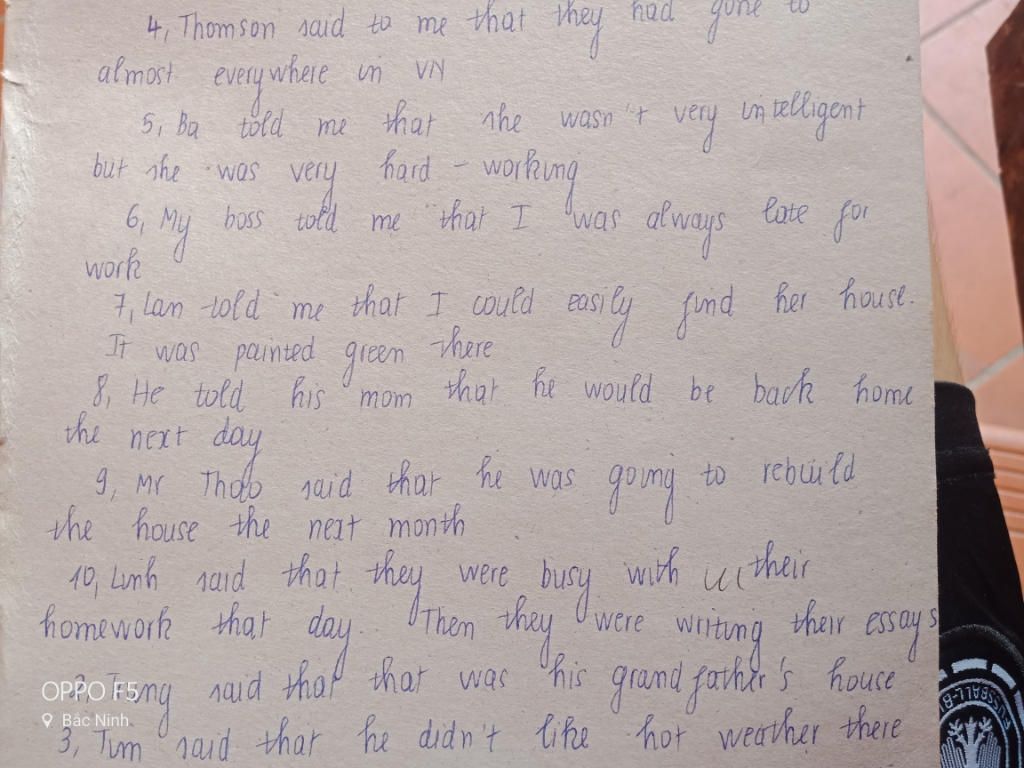 4, Thomson said to me that they had gone to
almost everywhere in VN
5, Ba told me that she wasn't very intelligent
but she was very hard - working
6, My boss told me that I was always late for
work
7, Lan told me that I could easily find her house.
It was painted green there
8, He told his mom that he would be back home
the next day
9, Mr Thao said that he was going to rebuild
the house the next month
10, Linh said that they were busy with their
homework that day. Then they were writing their essays
2, Tung said that that was his grandfather's house
3, Tim said that he didn't like hot weather there
OPPO F5
Bắc Ninh